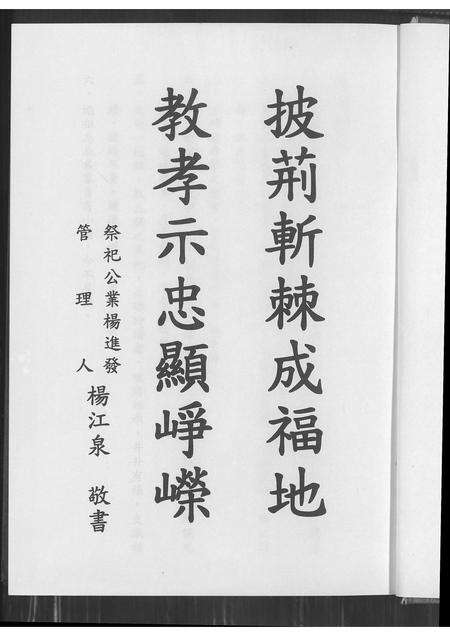 披荊斬棘成福地
教孝示忠顯崢嶸
祭祀公業楊進發
管理人楊江泉 敬書